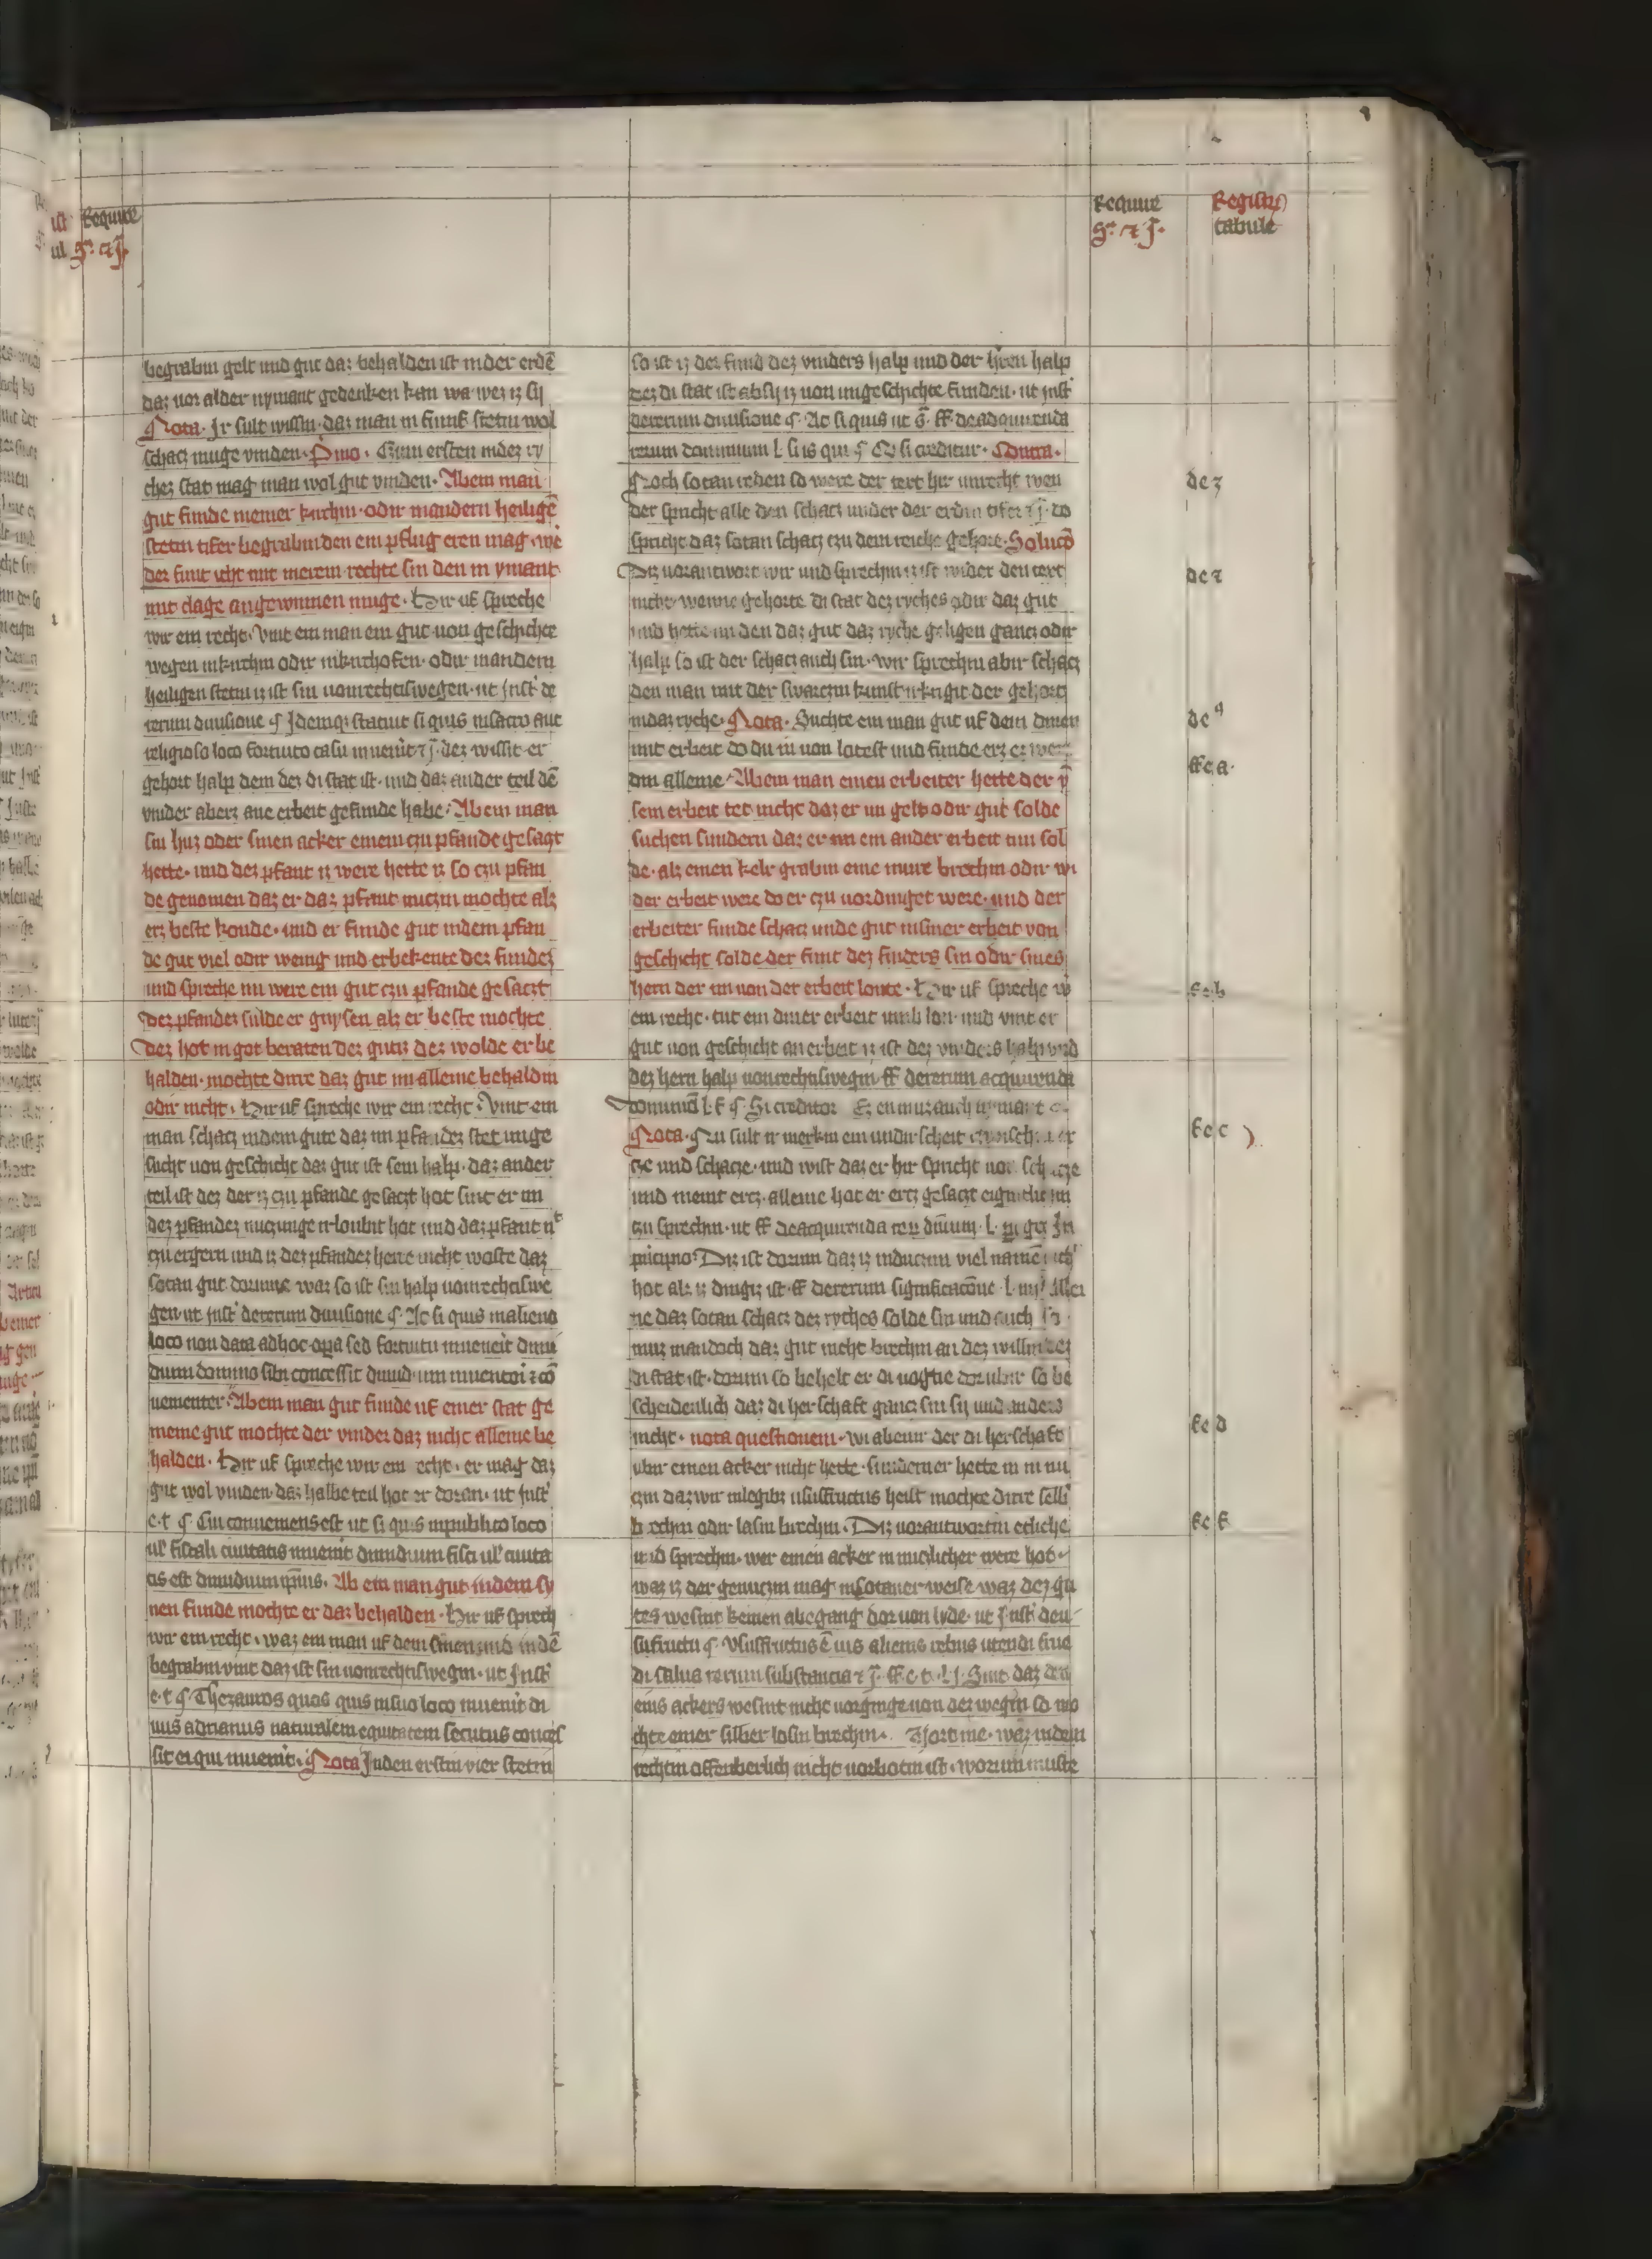 Require
Sᵃ ⁊ J.
begrabin gelt und gut daz behalden ist in der erdē
daz von alder nymant gedenken kan wa wez iz sy
Nota. Ir sult wissin. daz man in funf stetin wol
schacz muge vinden. Primo. Czum ersten in dez ry
chez stat mag man wol gut vinden. Ab ein man
gut funde in einer kirchin. odir in andern heiligē
stetin tifer begrabin den ein pflug eren mag. we
der funt icht mit merem rechte sin den in ymant
mit clage angewinnen muge. Hir uf spreche
wir ein recht. Vint ein man ein gut von geschichte
wegen in kirchin odir in kirchofen. odir in andern
heiligen stetin iz ist sin vonrechtiswegen. ut Inst' de
rerum divisione ¶ Idemqʒ statuit si quis in sacro aut
religioso loco fortuito casu invenīt ⁊ j. dez wissit er
gehort halp dem dez di stat ist. und daz ander teil dē
vinder aberz ane erbeit gefunde habe. Ab ein man
sin huz oder sinen acker einem czu pfande gesaczt
hette. und dez pfant iz were hette iz so czu pfan
de genomen daz er daz pfant nuczin mochte alz
erz beste konde. und er funde gut in dem pfan
de gut viel odir wenig und erbekente dez fundez
und spreche nu were ein gut czu pfande gesaczt
Dez pfandez sulde er gnysen alz er beste mochte
Dez hot in got beraten dez gutz dez wolde er be
halden. mochte dirre daz gut im alleine behaldin
odir nicht. Hir uf spreche wir ein recht. Vint ein
man schacz in dem gute daz im pfandez stet unge
sucht von geschicht daz gut ist sein halp. daz ander
teil ist dez der iz czu pfande gesaczt hot sint er im
dez pfandez nuczunge irloubit hot und daz pfant nᵗ
czu ergern und iz dez pfandez herre nicht woste daz
sotan gut dorinne waz so ist sin halp vonrechtiswe
gen. ut Inst' de rerum divisione ¶ Ac si quis in alieno
loco non data ad hoc opa sed fortuitu invenerit dimi
dium domino sibi concessit dimidium inventori ⁊ cō
venienter. Ab ein man gut funde uf einer stat ge
meine gut mochte der vinder daz nicht alleine be
halden. Hir uf spreche wir ein recht. er mag daz
gut wol vinden. daz halbe teil hot er doran. ut Inst'
e. t ¶ Cui conveniens est ut si quis in publico loco
ul' fiscali civitatis invenit dimidium fisci ul' civita
tis est dimidium ipīus. Ab ein man gut in dem sy
nen funde mochte er daz behalden. Hir uf sprech
wir ein recht. waz ein man uf dem sinen und in dē
begrabin vint daz ist sin vonrechtiswegin. ut Inst'
e. t ¶ Thezauros quos quis in suo loco invenit di
vus adrianus naturalem equitatem secutus conces
sit ei qui invenit. Nota In den erstin vier stetin
Require
Sᵃ ⁊ J.
Registrum
tabule
so ist iz dez fund dez vinders halp und der h'ren halp
dez di stat ist ab sy iz von ungeschichte funden. ut Inst'
de rerum divisione ¶ Ac si quis ut sᵃ. ff de adquirenda
rerum dominium l si is qui ¶ Ed si creditur. Contra.
Noch sotan reden so were der text hir unrecht wen
der spricht alle den schacz under der erdin tifer ⁊ j. do
spricht daz sotan schacz czu dem reiche gehore. Solucō
Diz vorantwort wir und sprechin iz ist wider den text
nicht. wenne gehorte di stat dez ryches odir daz gut
und hette im den daz gut daz ryche geligen gancz odir
halp so ist der schacz auch sin. wir sprechin abir schacz
den man mit der swarczin kunst irkrigit der gehort
in daz ryche. Nota. Suchte ein man gut uf dem dinen
mit erbeit do du in von lotest und funde erz ez wer
din alleine. Ab ein man einen erbeiter hette der ȳ
sein erbeit tet nicht daz er im gelt odir gut solde
suchen sundern daz er im ein ander erbeit tun sol
de. alz einen kelr grabin eine mure brechin odir wi
der erbeit were do er czu vordinget were. und der
erbeiter funde schacz unde gut in siner erbeit von
geschicht solde der funt dez finders sin odir sines
hern der im von der erbeit lonte. Hir uf spreche w̄
ein recht. tut ein diner erbeit umb lon und vint er
gut von geschicht an erbeit iz ist dez vinders halp und
dez hern halp vonrechtiswegin ff de rerum acquirenda
dominiū l. f ¶ Si creditor. Ez en muz auch nymant
Nota. Nu sult ir merkin ein undirscheit czwischin er
cze und schacze. und wist daz er hir spricht von schacze
und meint ercz. alleine hot er ercz gesaczt eigintlich im
czu sprechin. ut ff de acquirenda rerū dn̄ium. l.
principio. Diz ist dorum daz iz in ductum viel namē
hot alz iz dingz ist. ff de rerum significacōne. l. Allei
ne daz sotan schacz dez ryches solde sin und auch
muz man doch daz gut nicht brechin an dez willin dez
di stat ist. dorum so behelt er di vogtie dor ubir so be
scheidenlich daz di herschaft gancz sin sy und anders
nicht. nota questionem. wi ab einir der di herschaft
ubir einen acker nicht hette. sundern er hette in in nu
czin daz wir in legibz ususfructus heist mochte dirre selbr
brechin odir lasin brechin. Diz vorantwortin etliche
und sprechin. wer einen acker in nuczlicher were hot.
waz iz der genuczin mag in sotaner weise waz dez gu
tes wesint keinen abegang dor von lyde. ut Inst' deu
sufructu ¶ Ususfructus ē ius alienis rebus utendi frue
di salua rerum substancia ⁊ j. ff. e. t. l. j. Sint daz den
eins ackers wesint nicht vorginge von dez wegin so mo
chte einer silber losin brechin. Fort me. waz in dem
rechtin offenberlich nicht vorbotin ist. worum muste